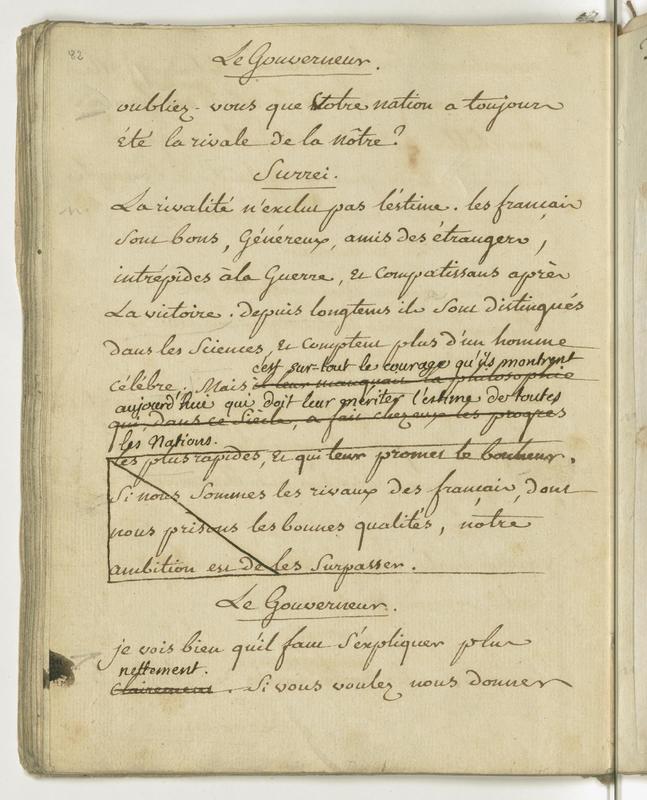 82
Le Gouverneur.
oubliez-vous que Votre nation a toujours
été la rivale de la nôtre?
Surrei.
La rivalité n'exclut pas l'éstime. les français
sont bons, Généreux, amis des étrangers,
intrépides à la Guerre, et compatissans après
La victoire. depuis longtems ils sont distingués
dans les sciences, et comptent plus d'un homme
c'est sur-tout le courage qu'ils montrent
célébre. Mais il leur manquait la philosophie
aujourd'hui qui doit leur mériter l'estime de toutes
qui, dans ce siècle, a fait chez eux les progres
les Nations.
les plus rapides, et qui leur promet le bonheur.
Si nous sommes les rivaux des français, dont
nous prisons les bonnes qualités, nôtre
ambition est de les surpasser.
Le Gouverneur.
je vois bien qu'il faut s'éxpliquer plus
nettement.
clairement. Si vous voulez nous donner